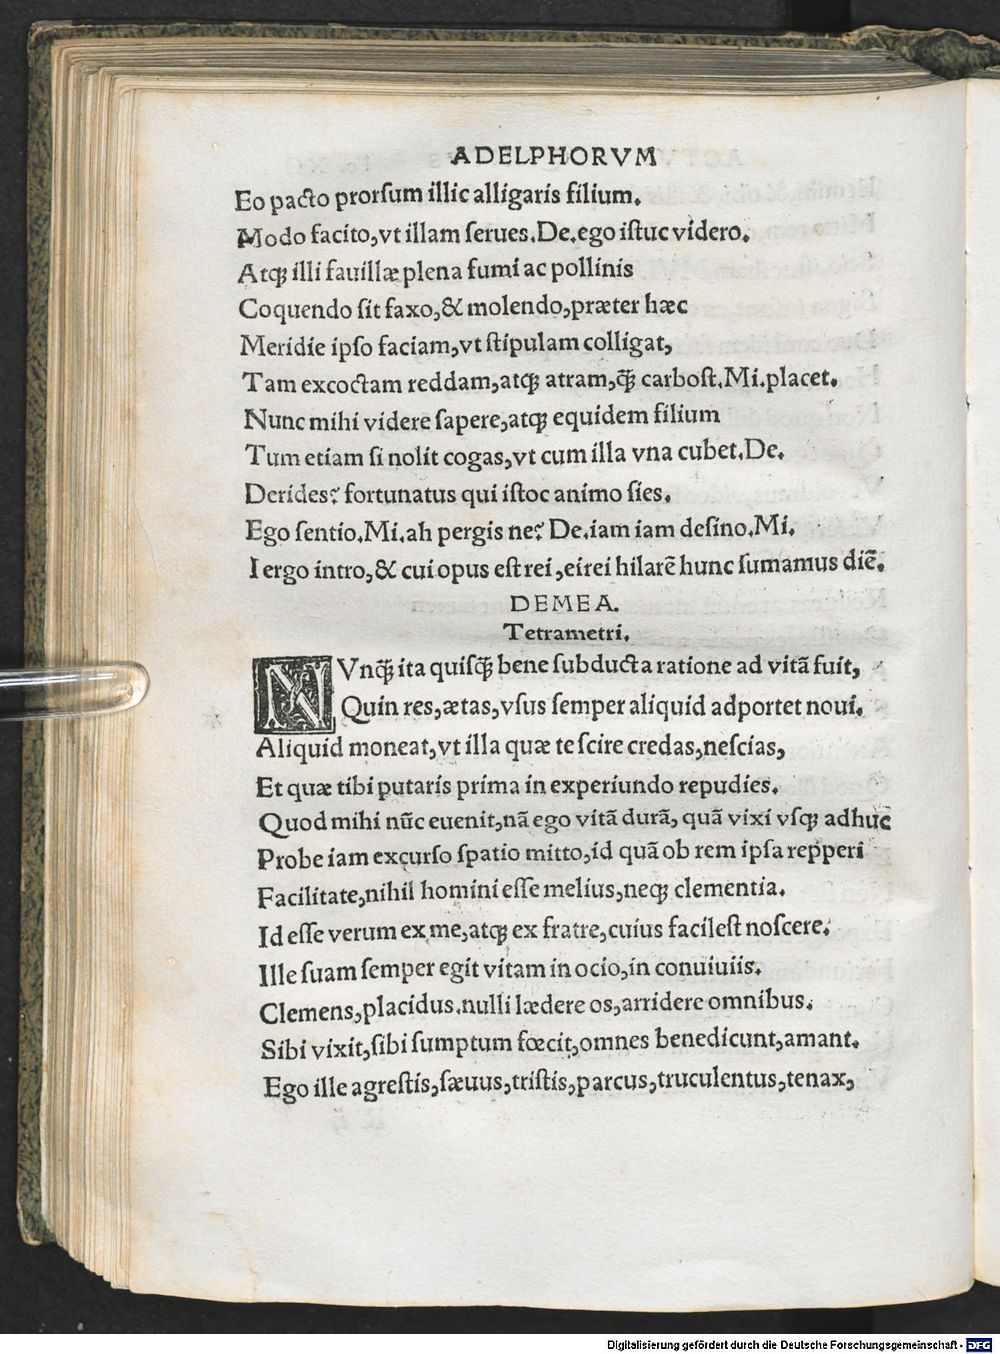 ADELPHORVM
Eo pacto prorſum illic alligaris filium.
Modo facito,vt illam ſerues.De.ego iſtuc videro.
Atqꝫ illi fauillæ plena fumi ac pollinis
Coquendo ſit faxo,& molendo,præter hæc
Meridie ipſo faciam,vt ſtipulam colligat,
Tam excoctam reddam,atqꝫ atram,q̃ꝫ carboſt.Mi.placet.
Nunc mihi videre ſapere,atqꝫ equidem filium
Tum etiam ſi nolit cogas,vt cum illa vna cubet.De.
Derides? fortunatus qui iſtoc animo ſies.
Ego ſentio.Mi.ah pergis ne? De.iam iam deſino.Mi.
I ergo intro,& cui opus eſt rei,ei rei hilarẽ hunc ſumamus diẽ.
DEMEA.
Tetrametri.
NVnq̃ꝫ ita quiſq̃ꝫ bene ſubducta ratione ad vitã fuit,
Quin res,ætas,vſus ſemper aliquid adportet noui.
Aliquid moneat,vt illa quæ te ſcire credas,neſcias,
Et quæ tibi putaris prima in experiundo repudies.
Quod mihi nũc euenit,nã ego vitã durã, quã vixi vſqꝫ adhuc
Probe iam excurſo ſpatio mitto,id quã ob rem ipſa repperi
Facilitate,nihil homini eſſe melius,neqꝫ clementia.
Id eſſe verum ex me,atqꝫ ex fratre,cuius facileſt noſcere.
Ille ſuam ſemper egit vitam in ocio,in conuiuiis.
Clemens,placidus.nulli lædere os,arridere omnibus.
Sibi vixit,ſibi ſumptum fœcit,omnes benedicunt,amant.
Ego ille agreſtis,ſæuus,triſtis,parcus,truculentus,tenax,
Digitalisierung gefördert durch die Deutsche Forschungsgemeinschaft - DFG